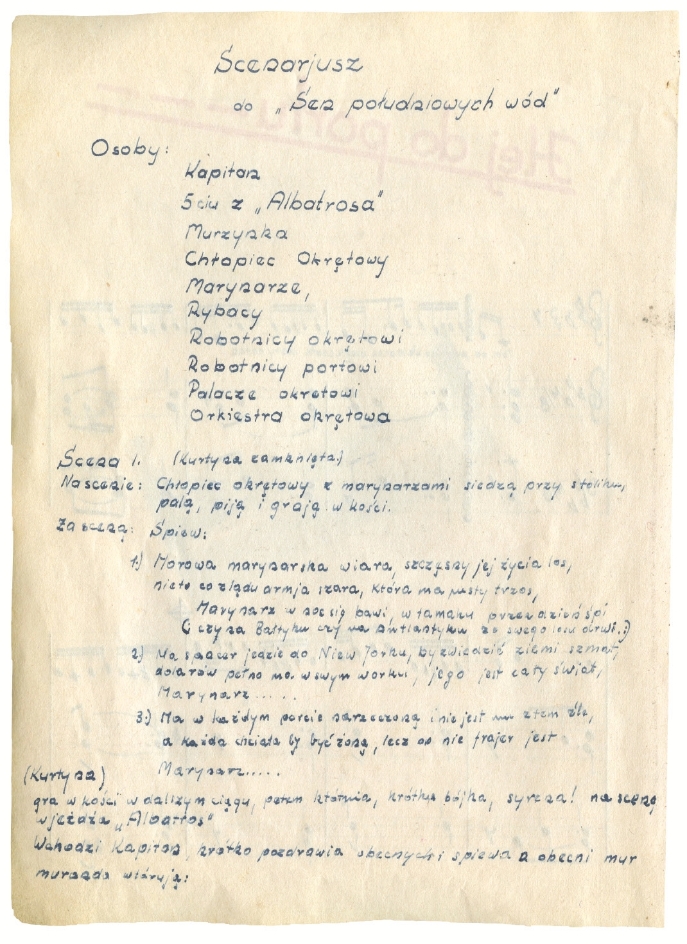 Scenarjusz
do „Sen południowych wód"
Hej do portu
Osoby:
Kapitan
5ciu z „Albatrosa"
Murzynka
Chłopiec Okrętowy
Marynarze,
Rybacy
Robotnicy okrętowi
Robotnicy portowi
Palacze okrętowi
Orkiestra okrętowa
Scena 1. (Kurtyna zamknięta)
Na scenie: Chłopiec okrętowy z marynarzami siedzą przy stoliku,
palą, piją i grają w kości.
Za sceną: Śpiew:
1) Morowa marynarska wiara, szczęsny jej życia los,
nie to co z lądu armja szara, która ma pusty trzos,
Marynarz w noc się bawi, w hamaku przez dzień śpi
(: czy na Bałtyku czy na Atlantyku ze swego losu drwi. :)
2) Na spacer jedzie do Niew Jorku, by zwiedzić ziemi szmat,
dolarów pełno ma w swym worku, jego jest cały świat,
Marynarz.....
3) Ma w każdym porcie narzeczoną i nie jest mu z tem źle,
a każda chciała by być żoną, lecz on nie frajer jest
Marynarz.....
(Kurtyna)
gra w kości w dalszym ciągu, potem kłótnia, krótka bójka, syrena! na scenę
wjeżdża „Albatros"
Wchodzi Kapitan, krótko pozdrawia obecnych i śpiewa a obecni mur
murando wtórują: